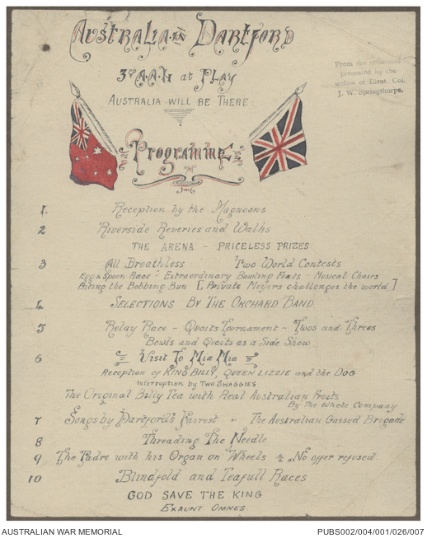 Australia in Dartford
3rd A.A.H at Play
Australia will be there
From the collection
presented by the
author of Lieut. Col.
J. W. Springthorpe.
Programme
1. Reception by the Magnoons
2 Riverside Reveries and Walks
THE ARENA – PRICELESS PRIZES
3 All Breathless Two World Contests
Egg & Spoon Race – Extraordinary Bowling Feats – Musical Chairs
Biting the Bobbing Bun [Private Meyers challenges the world]
4 Selections By The Orchard Band
5 Relay Race – Quoits Tournament – Twos and Threes
Bowls and Quoits as a Side Show
6 Visit To Mia Mia
Reception of King Billy, Queen Lizzie and the Dog
Interruption by Two Swaggies
The Original Billy Tea with Real Australian Fruits
By The Whole Company
7 Songs by Dartford's Fairest – The Australian Gassed Brigade
8 Threading The Needle
9 The Padre with his Organ on Wheels & No offer refused
10 Blindfold and Teafull Races
GOD SAVE THE KING
Exaunt Omnes
AUSTRALIAN WAR MEMORIAL
PUBS002/004/001/026/007